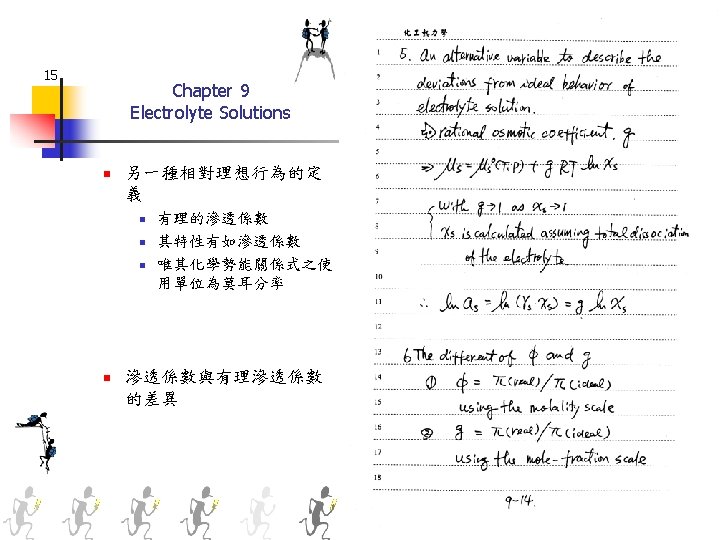 15
Chapter 9
Electrolyte Solutions
另一種相對理想行為的定
義
有理的滲透係數
其特性有如滲透係數
唯其化學勢能關係式之使
用單位為莫耳分率
滲透係數與有理滲透係數
的差異
化工熱力學
1 5. An alternative variable to describe the
2 deviations from ideal behavior of
3 electrolyte solution.
4 ⇒ rational osmotic coefficient, g
5
6 ⇒ μs = μs°(T,P) + g RT ln xs
7 with g→1 as xs→1
8 xs is calculated assuming total dissociation
9 of the electrolyte
10
11 ∴ ln as = ln (γs xs) = g ln xs
12
13 6 The different of φ and g
14 ① φ = π(real)/π(ideal)
15 using the molality scale
16 ② g = π(real)/π(ideal)
17 using the mole-fraction scale
18
9-14.